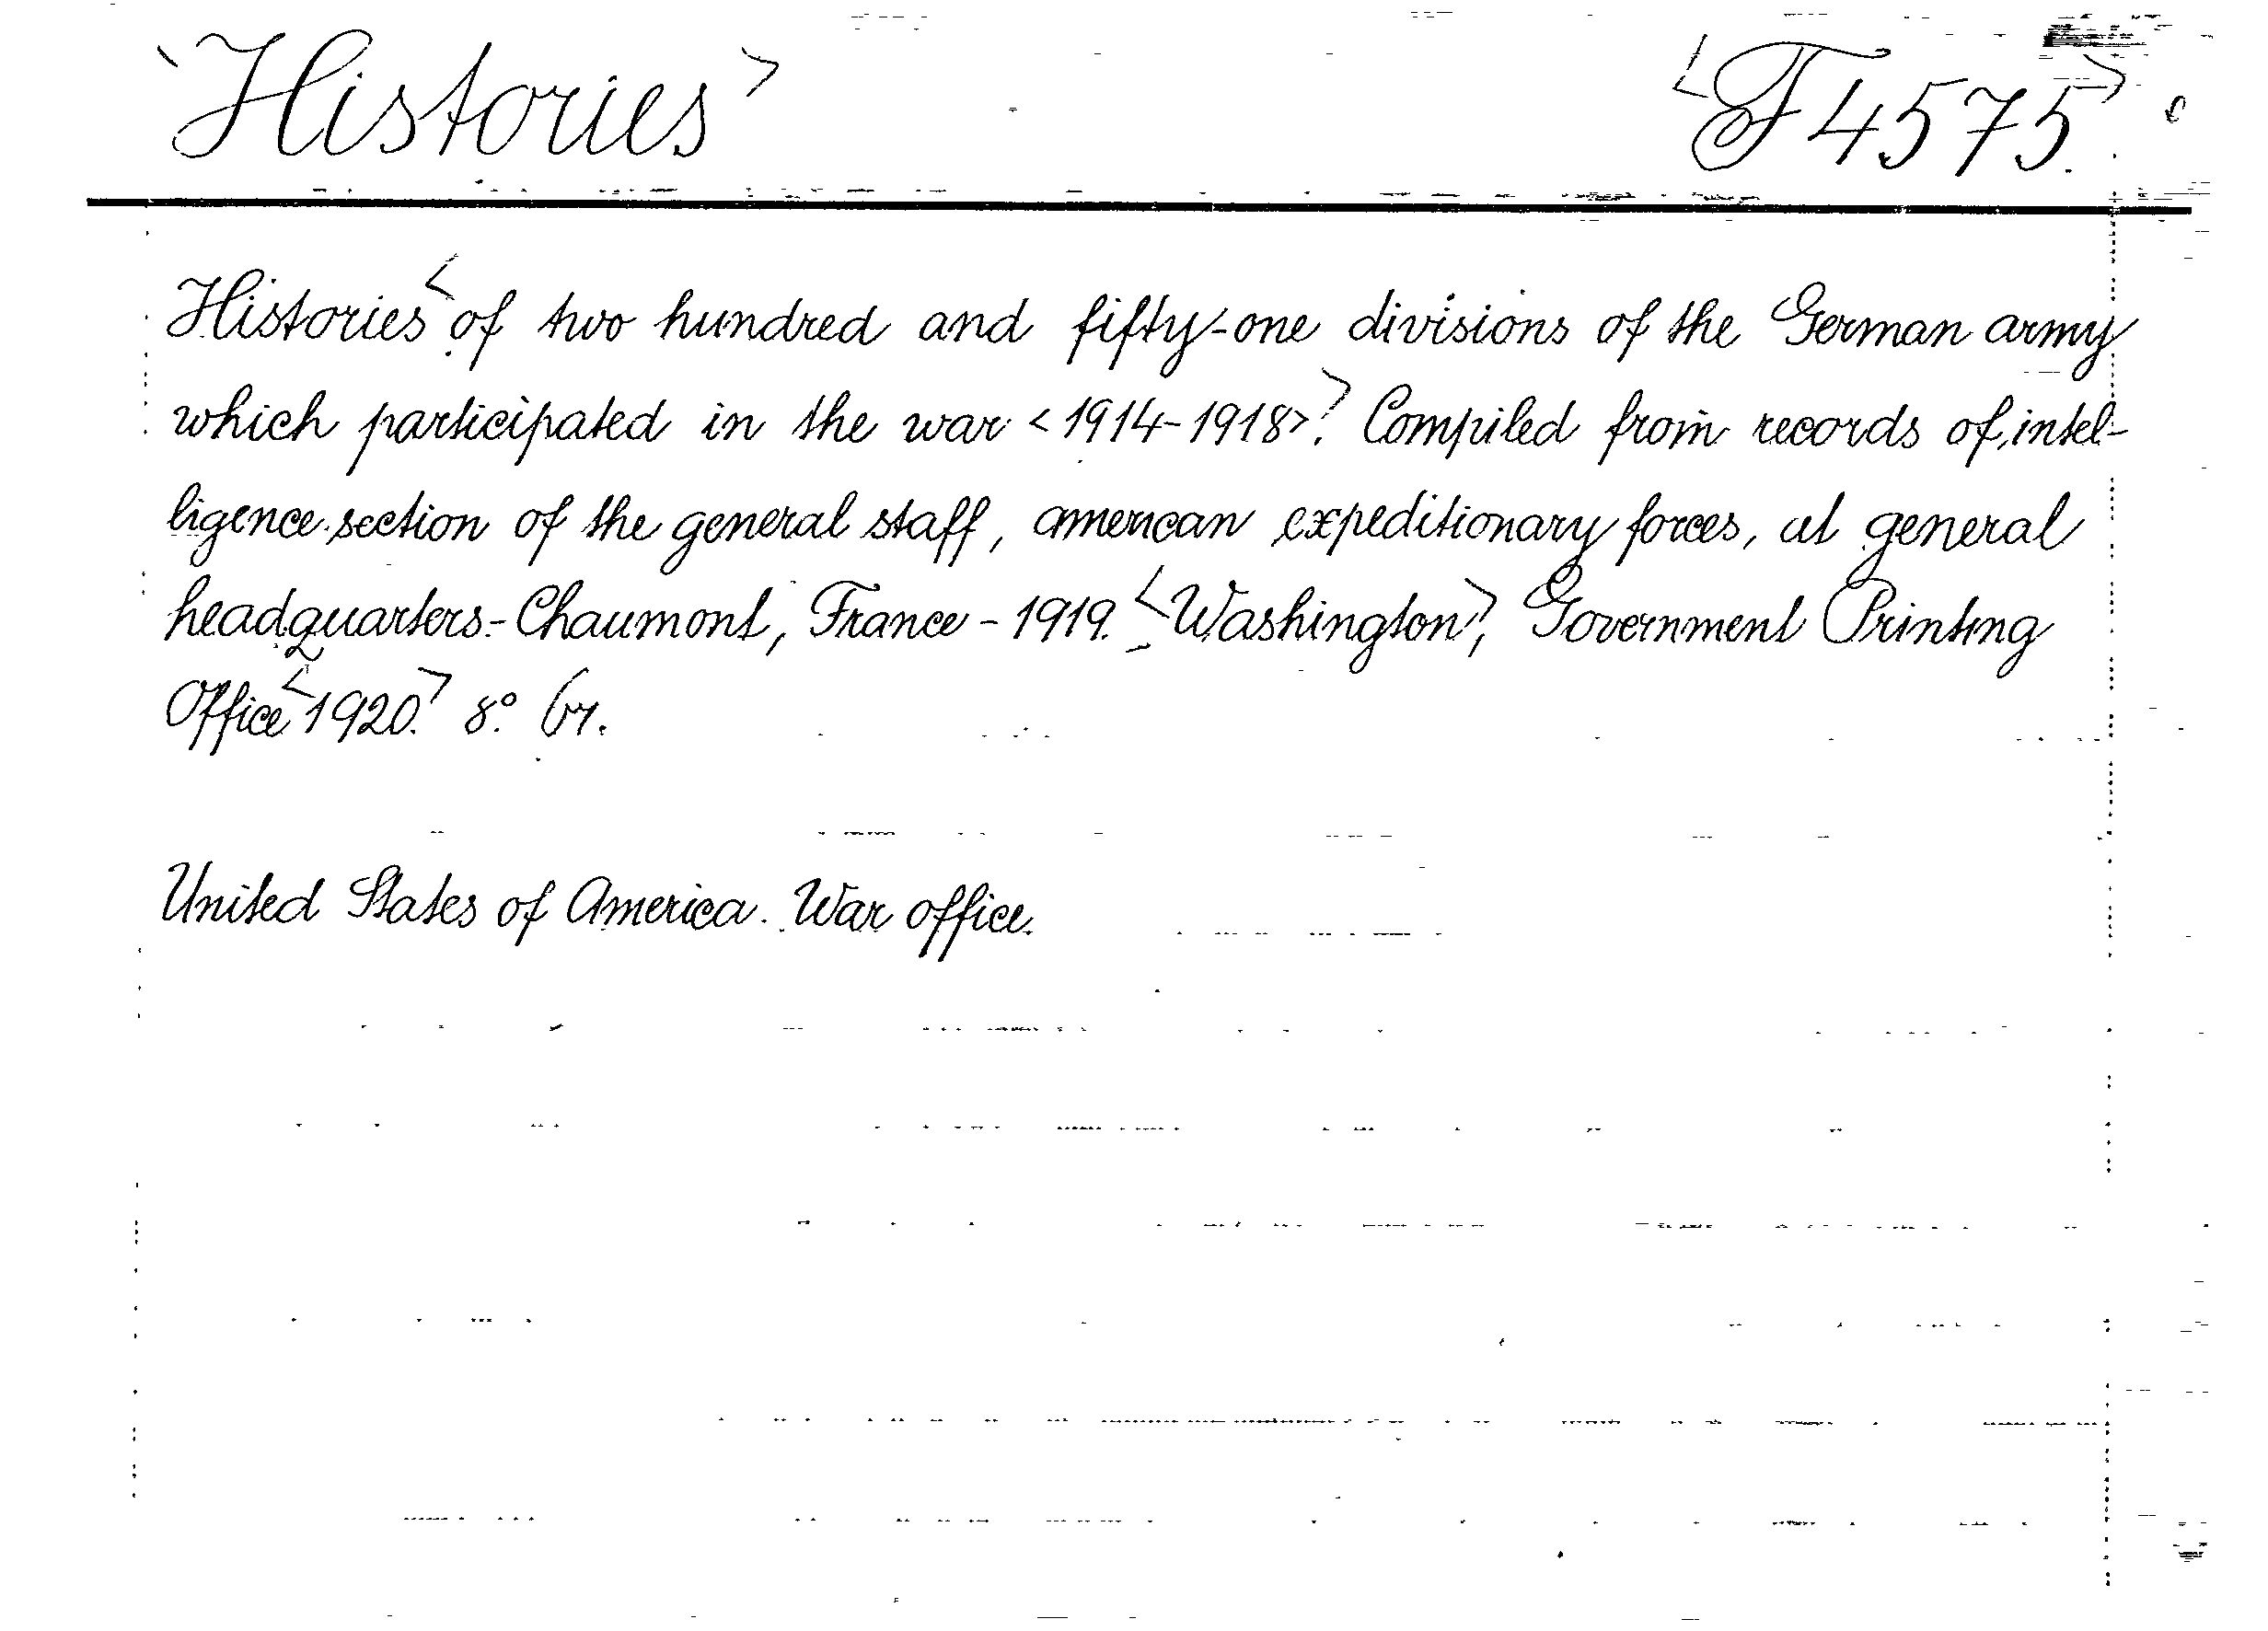 <Histories> <F 4575.>
Histories <of two hundred and fifty-one divisions of the German army
which participated in the war <1914-1918>>. Compiled from records of intel-
ligence section of the general staff, american expeditionary forces, at general
headquarters - Chaumont, France - 1919. <Washington>, Government Printing
Office <1920.> 8°.
United States of America. War office.